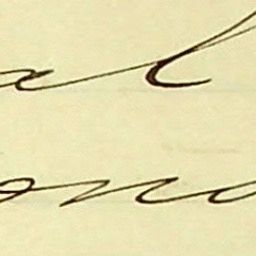 al
ona